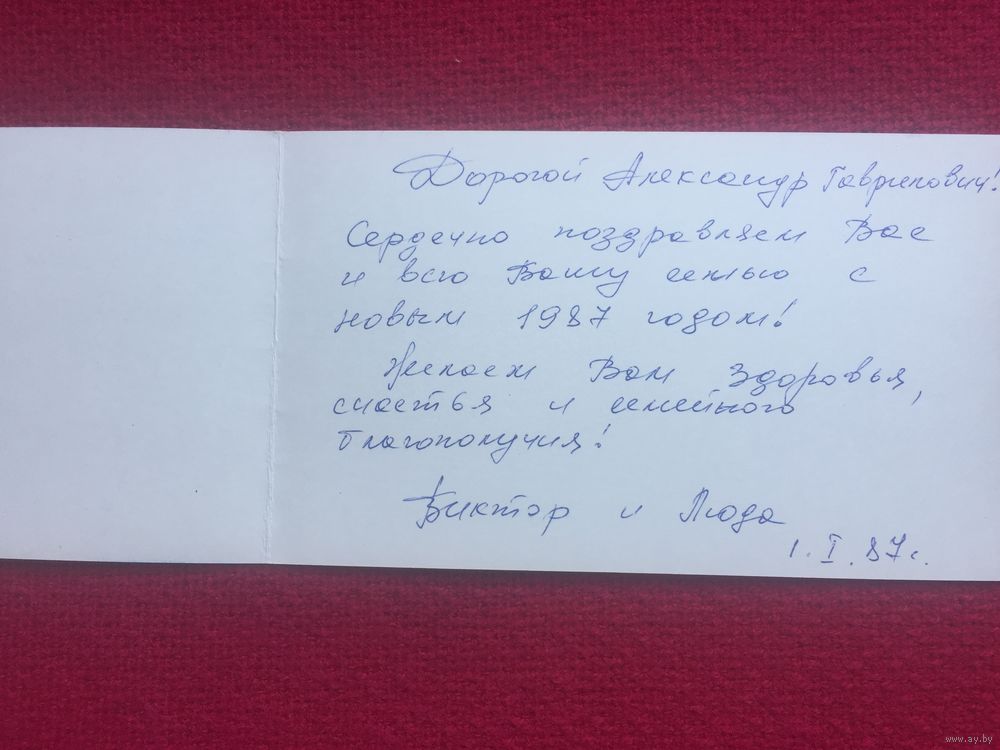 Дорогой Александр Гаврилович!
Сердечно поздравляем Вас
и всю Вашу семью с
новым 1987 годом!
Желаем Вам здоровья,
счастья и семейного
благополучия!
Виктор и Люда
1. I. 87 г.
www.ay.by